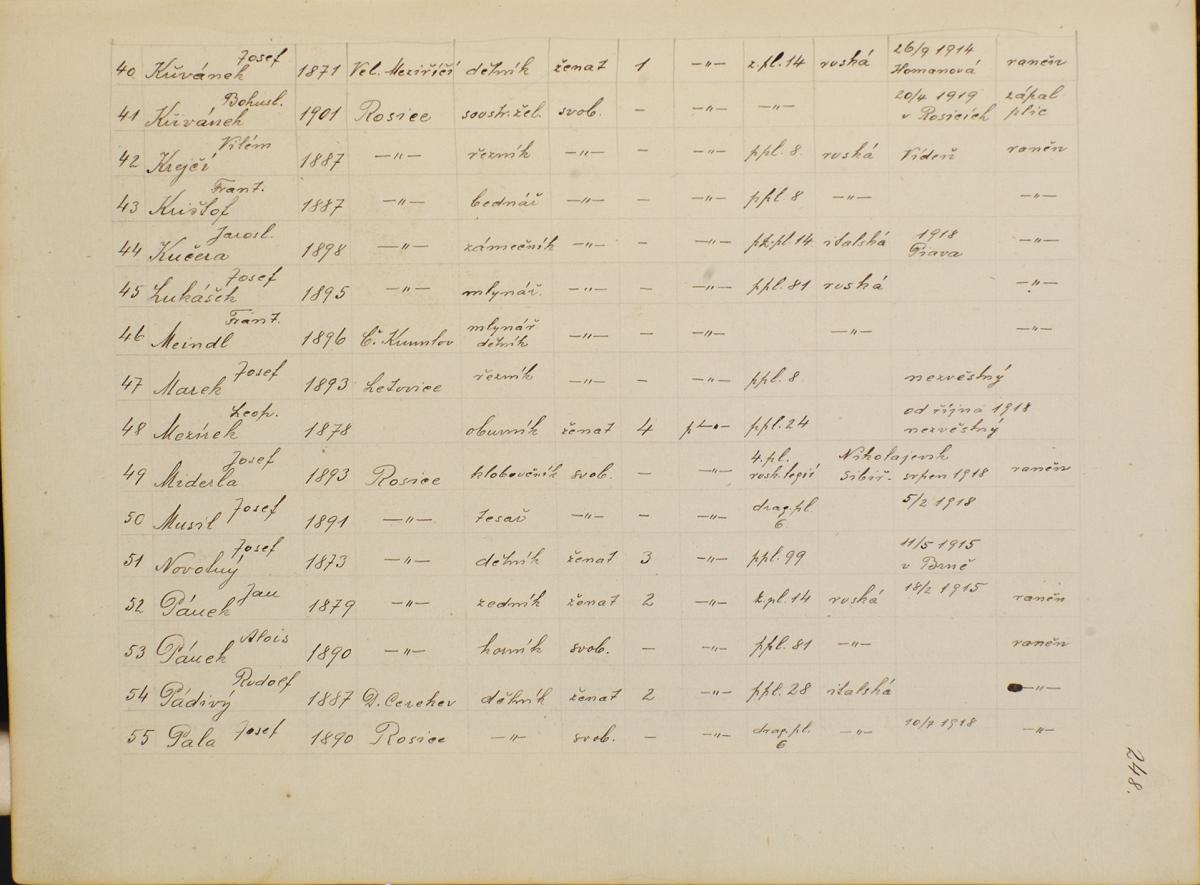 40 Křivánek Josef 1871 Vel. Meziříčí dělník ženat 1 —"— z.pl.14 ruská 26/9 1914 Homanová raněn
41 Křivánek Bohusl. 1901 Rosice soustr.žel. svob. - —"— —"— 20/4 1919 v Rosicích zápal plic
42 Krejčí Vilém 1887 —"— řezník —"— - —"— ppl. 8. ruská Vídeň raněn
43 Krištof Frant. 1887 —"— bednář —"— - —"— ppl. 8 —"— —"—
44 Kučera Jarosl. 1898 —"— zámečník —"— - —"— pl.14 italská 1918 Piava —"—
45 Lukášek Josef 1895 —"— mlynář. —"— - —"— ppl. 81 ruská —"—
46 Meindl Frant. 1896 Č. Kumlov mlynář dělník —"— - —"— —"— —"—
47 Marek Josef 1893 Letovice řezník —"— - —"— ppl. 8 nezvěstný
48 Mezírek Leop. 1878 obuvník ženat 4 ppl. 24 od října 1918 nezvěstný
49 Miderla Josef 1893 Rosice kloboučník svob. - —"— 4. pl. rusk.legií Nikolajevsk Sibiř - srpen 1918 raněn
50 Musil Josef 1891 —"— tesař —"— - —"— drag.pl. 6 5/2 1918
51 Novotný Josef 1873 —"— dělník ženat 3 —"— ppl. 99 11/5 1915 v Brně
52 Pánek Jan 1879 —"— zedník ženat 2 —"— z.pl. 14 ruská 18/2 1915 raněn
53 Pánek Alois 1890 —"— horník svob. - —"— ppl. 81 —"— raněn
54 Pádivý Rudolf 1887 D. Cerekev dělník ženat 2 —"— ppl. 28 italská —"—
55 Pala Josef 1890 Rosice —"— svob. - —"— drag.pl. 6 —"— 10/7 1918 —"—
248.